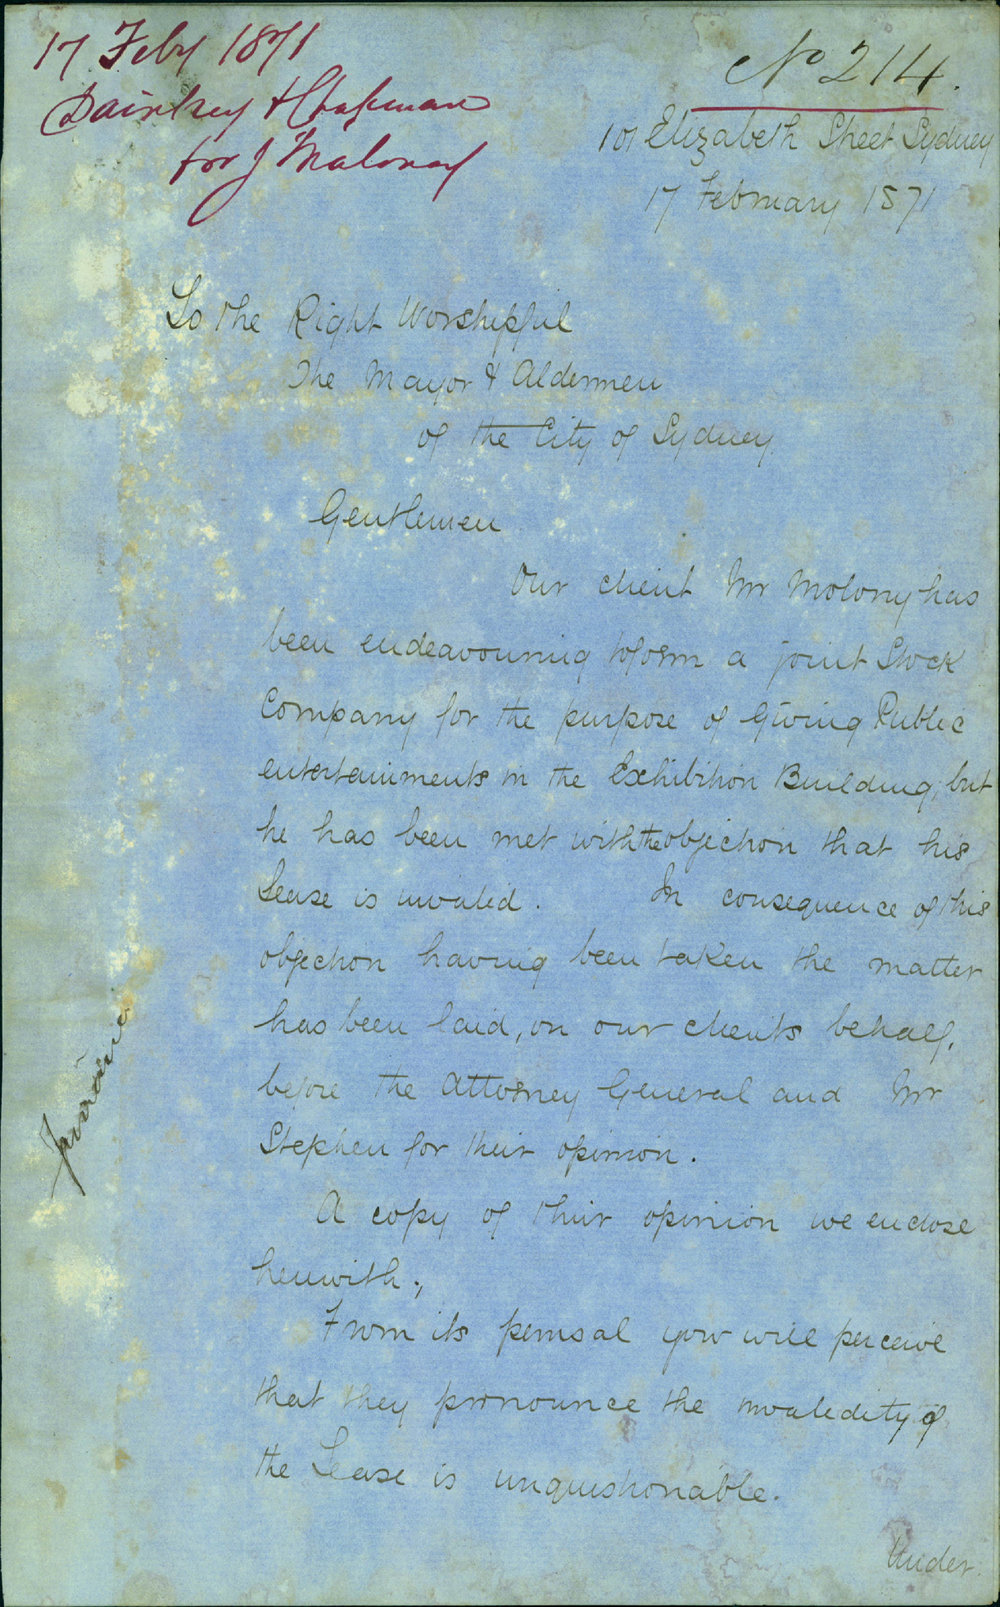 17 Feby 1871
& Chapman
for J Malony
No 214.
101 Elizabeth Street Sydney
17 February 1871
To the Right Worshipful
The Mayor & Aldermen
of the City of Sydney
Gentlemen
Our client Mr Molony has
been endeavouring to form a joint Stock
Company for the purpose of Giving Public
entertainments in the Exhibition Building, but
he has been met with the objection that his
Lease is invalid. In consequence of this
objection having been taken the matter
has been laid, on our clients behalf,
before the Attorney General and Mr
Stephen for their opinion.
A copy of their opinion we enclose
herewith;
From its perusal you will perceive
that they pronounce the invalidity of
the Lease is unquestionable.
Under